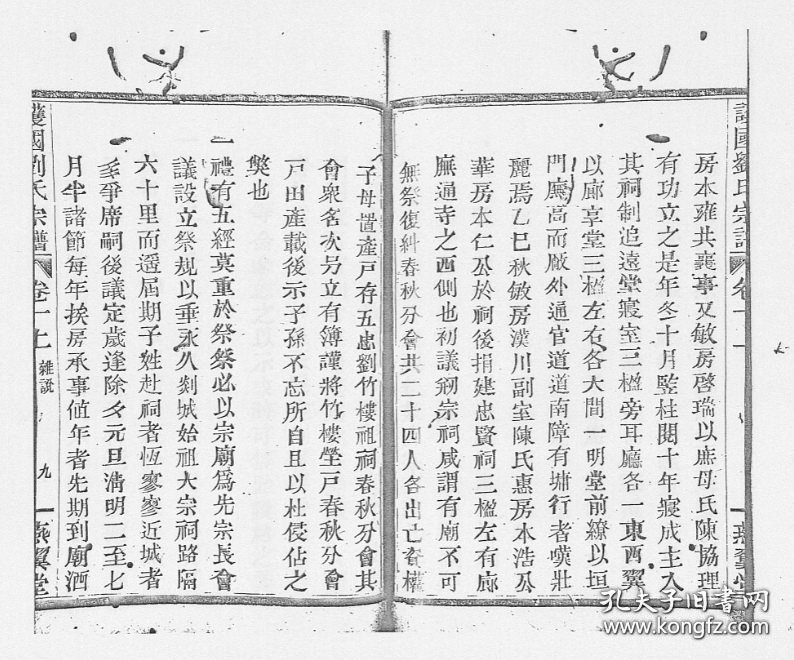 護國劉氏宗譜
卷十一
房本雍共襄事又敏房啓瑞以庶母氏陳協理
有功立之是年冬十月監柱閱十年寢成主入
其祠制追遠堂寢室三楹旁耳廳各一東西翼
以廊享堂三楹左右各大間一明堂前繚以垣
門廡高而廠外通官道道南障有墉行者嘆壯
麗焉乙巳秋敏房漢川副室陳氏惠房本浩公
華房本仁公於祠後捐建忠賢祠三楹左右廊
廡通寺之西側也初議剏宗祠咸謂有廟不可
無祭復糾春秋分會共二十四人各出亡資權
子母置產戶存五忠劉竹樓祖祠春秋分會其
會衆名次另立有簿謹將竹樓塋戶春秋分會
戶田產載後示子孫不忘所自且以杜侵佔之
獘也
一禮有五經莫重於祭祭必以宗廟爲先宗長會
議設立祭規以垂永久剡城始祖大宗祠路隔
六十里而遥屆期子姓赴祠者恆寥寥近城者
多爭席嗣後議定歲逢除夕元旦清明二至七
月半諸節每年挨房承事値年者先期到廟洒
護國劉氏宗譜
卷十一
雜説
九
燕翼堂
孔夫子旧书网
www.kongfz.com